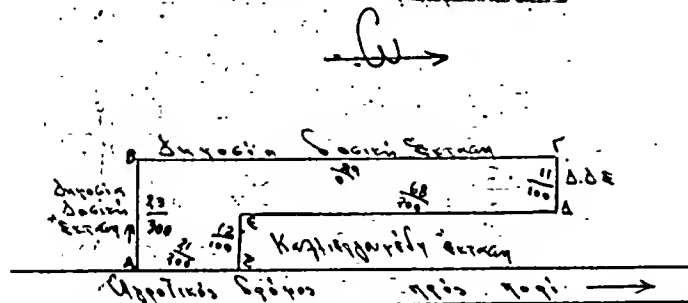 Β Δημοσία δασική έκταση Γ
89
0
Δημοσία
Δασική
Έκταση
23
300
68
200
11
100
Δ.Δ.Ε
Δ
Ε
12
100
21
200
Καλλιεργημένη έκταση
Α
Ζ
Αγροτικός δρόμος προς